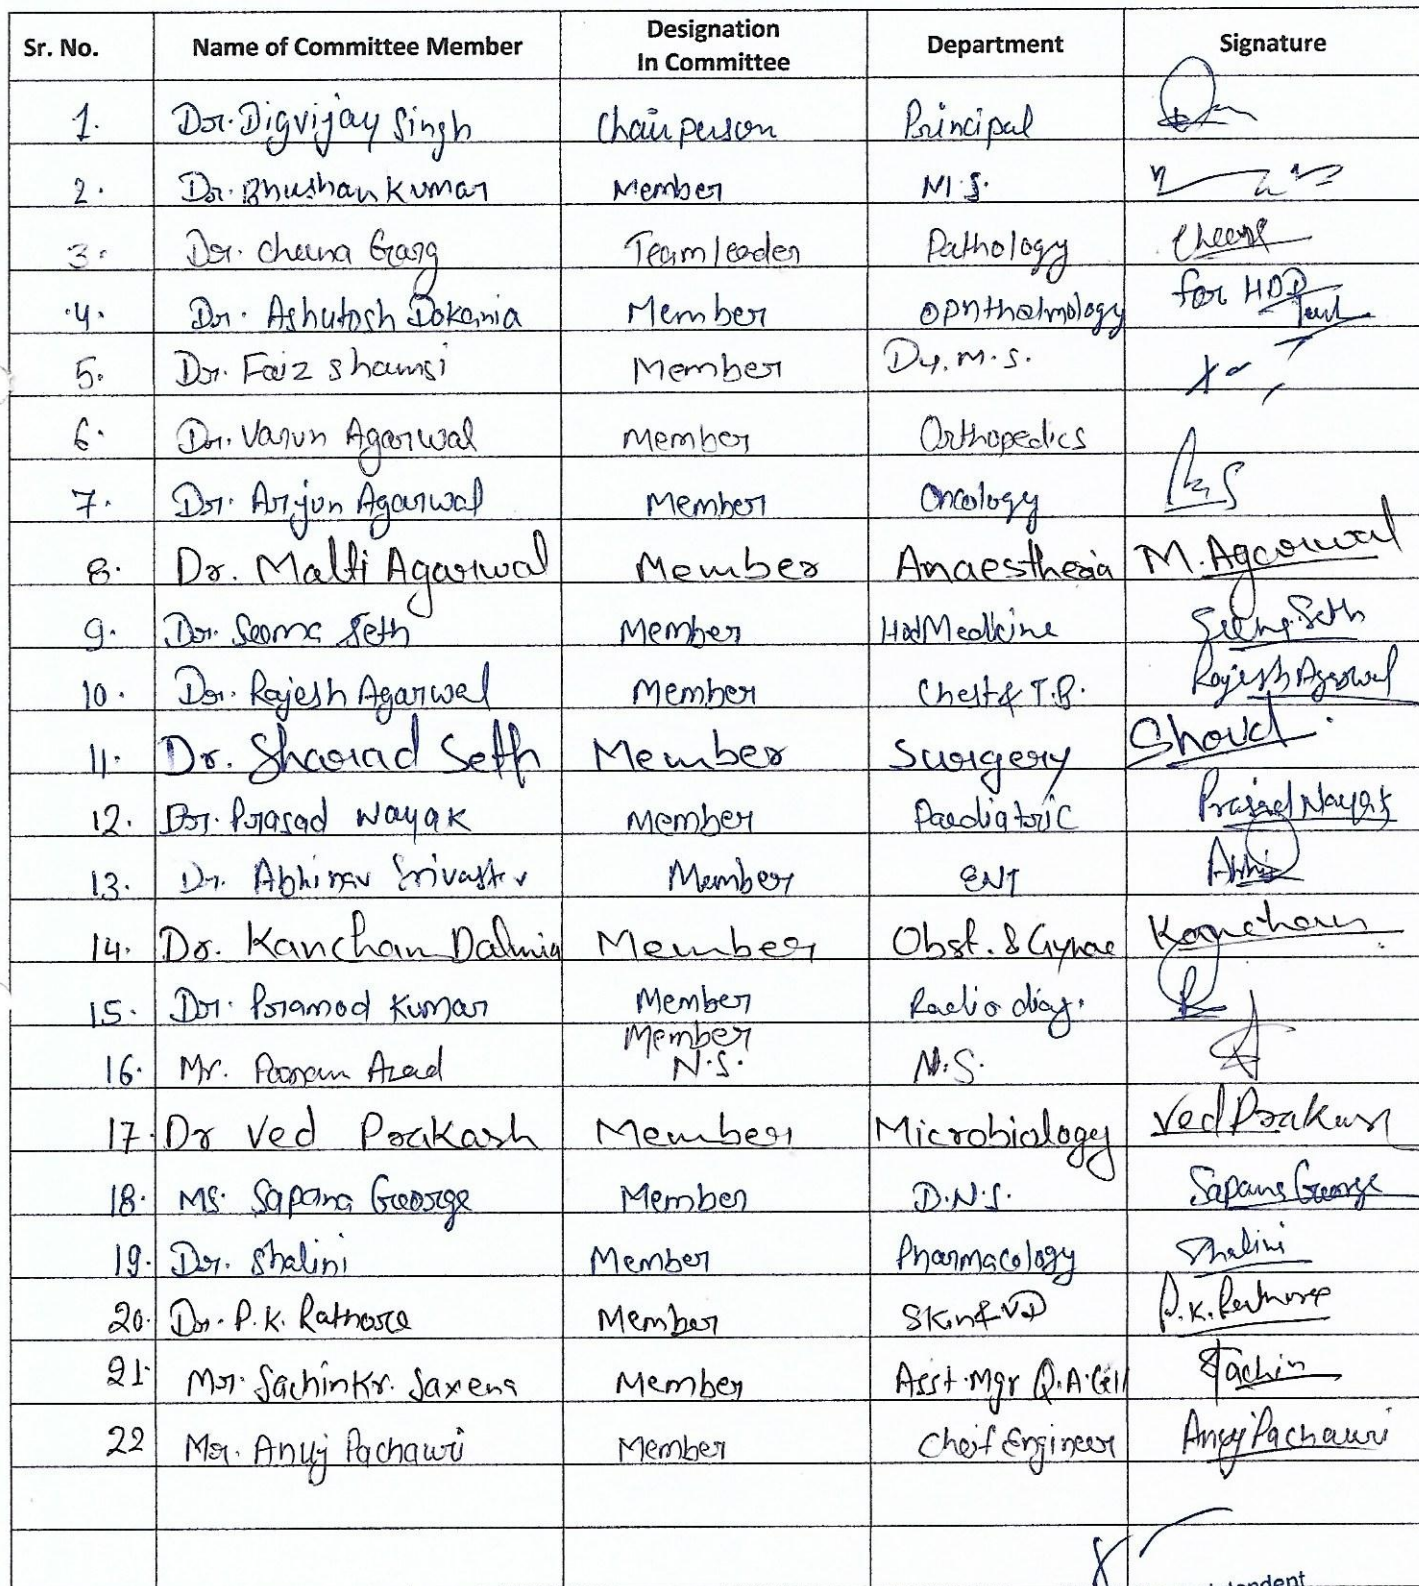 Sr. No. Name of Committee Member Designation In Committee Department Signature
1. Dr. Digvijay Singh Chairperson Principal
2. Dr. Bhushan Kumar Member M.S.
3. Dr. Cheena Garg Team leader Pathology Cheena
4. Dr. Ashutosh Dokania Member Opnthalmology for HOD
5. Dr. Faiz Shamsi Member Dy. M.S.
6. Dr. Varun Agarwal Member Orthopedics
7. Dr. Arjun Agarwal Member Oncology
8. Dr. Malti Agarwal Member Anaesthesia M. Agarwal
9. Dr. Seema Seth Member Hod Medicine Seema Seth
10. Dr. Rajesh Agarwal Member Chest & T.B. Rajesh Agarwal
11. Dr. Sharad Seth Member Surgery Sharad
12. Dr. Prasad Nayak Member Paediatric Prasad Nayak
13. Dr. Abhinav Srivastav Member ENT Abhi
14. Dr. Kanchan Dalmia Member Obst. & Gynae Kanchan
15. Dr. Pramod Kumar Member Radio diag.
16. Mr. Poonam Azad Member N.S. N.S.
17. Dr Ved Prakash Member Microbiology Ved Prakash
18. Ms. Sapana George Member D.N.S. Sapana George
19. Dr. Shalini Member Pharmacology Shalini
20. Dr. P.K. Rathore Member Skin & VD P.K. Rathore
21. Mr. Sachin Kr. Saxena Member Asst. Mgr Q.A. Cell Sachin
22 Mr. Anuj Pachauri Member Cheif Engineer Anuj Pachauri